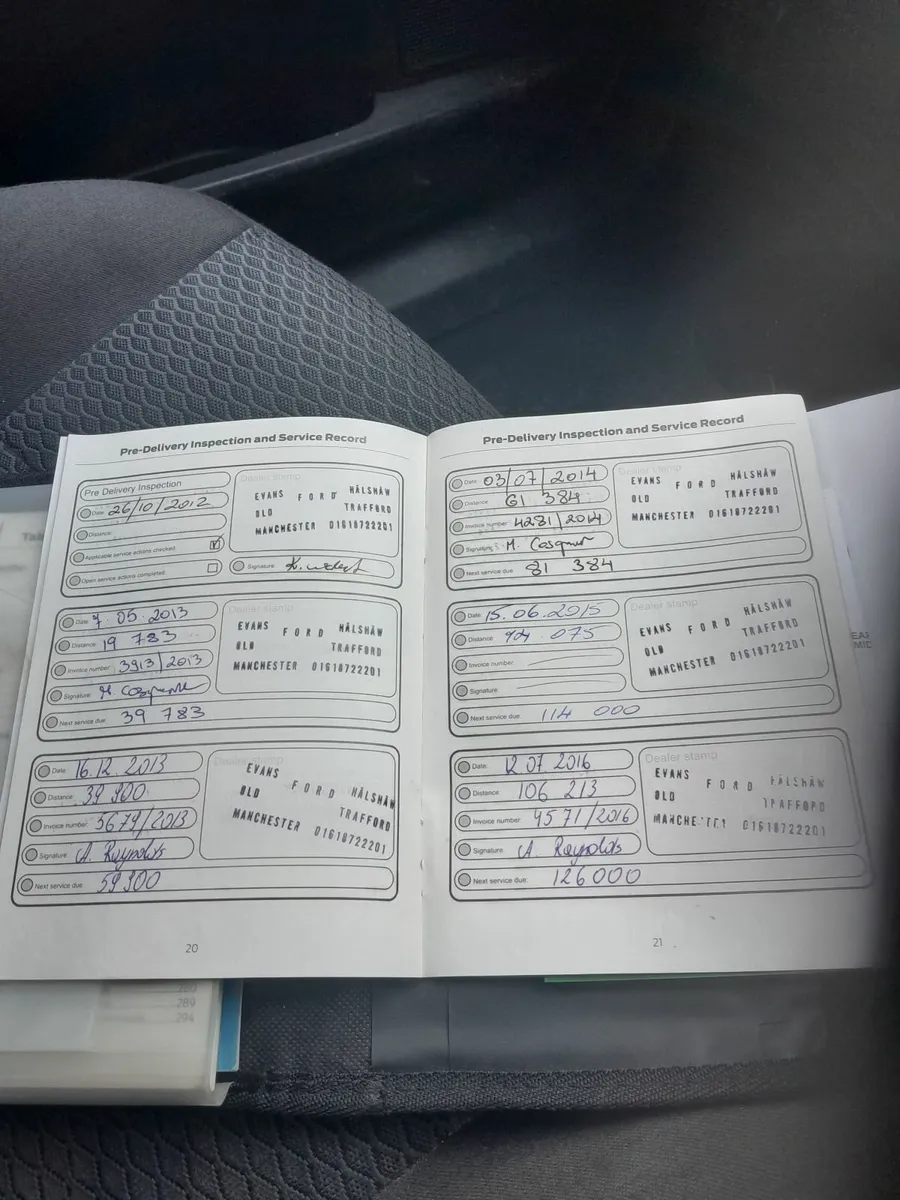 Pre-Delivery Inspection and Service Record
Pre Delivery Inspection
Date: 26/10/2012
Distance:
Applicable service actions checked
Open service actions completed
Dealer stamp
EVANS FORD HÄLSHÄW
OLD TRAFFORD
MANCHESTER 01618722201
Signature:
Date: 7.05.2013
Distance: 19 783
Invoice number: 3913/2013
Signature:
Next service due: 39 783
Dealer stamp
EVANS FORD HÄLSHÄW
OLD TRAFFORD
MANCHESTER 01618722201
Date: 16.12.2013
Distance: 39 900
Invoice number: 5679/2013
Signature: A. Raynolds
Next service due: 59 900
Dealer stamp
EVANS FORD HÄLSHÄW
OLD TRAFFORD
MANCHESTER 01618722201
20
Pre-Delivery Inspection and Service Record
Date: 03/07/2014
Distance: 61 384
Invoice number: 4281/2014
Signature: M.
Next service due: 81 384
Dealer stamp
EVANS FORD HÄLSHÄW
OLD TRAFFORD
MANCHESTER 01618722201
Date: 15.06.2015
Distance: 94 075
Invoice number:
Signature:
Next service due: 114 000
Dealer stamp
EVANS FORD HÄLSHÄW
OLD TRAFFORD
MANCHESTER 01618722201
Date: 12.07.2016
Distance: 106 213
Invoice number: 4571/2016
Signature: A. Raynolds
Next service due: 126 000
Dealer stamp
EVANS FORD HÄLSHÄW
OLD TRAFFORD
MANCHESTER 01618722201
21
289
294